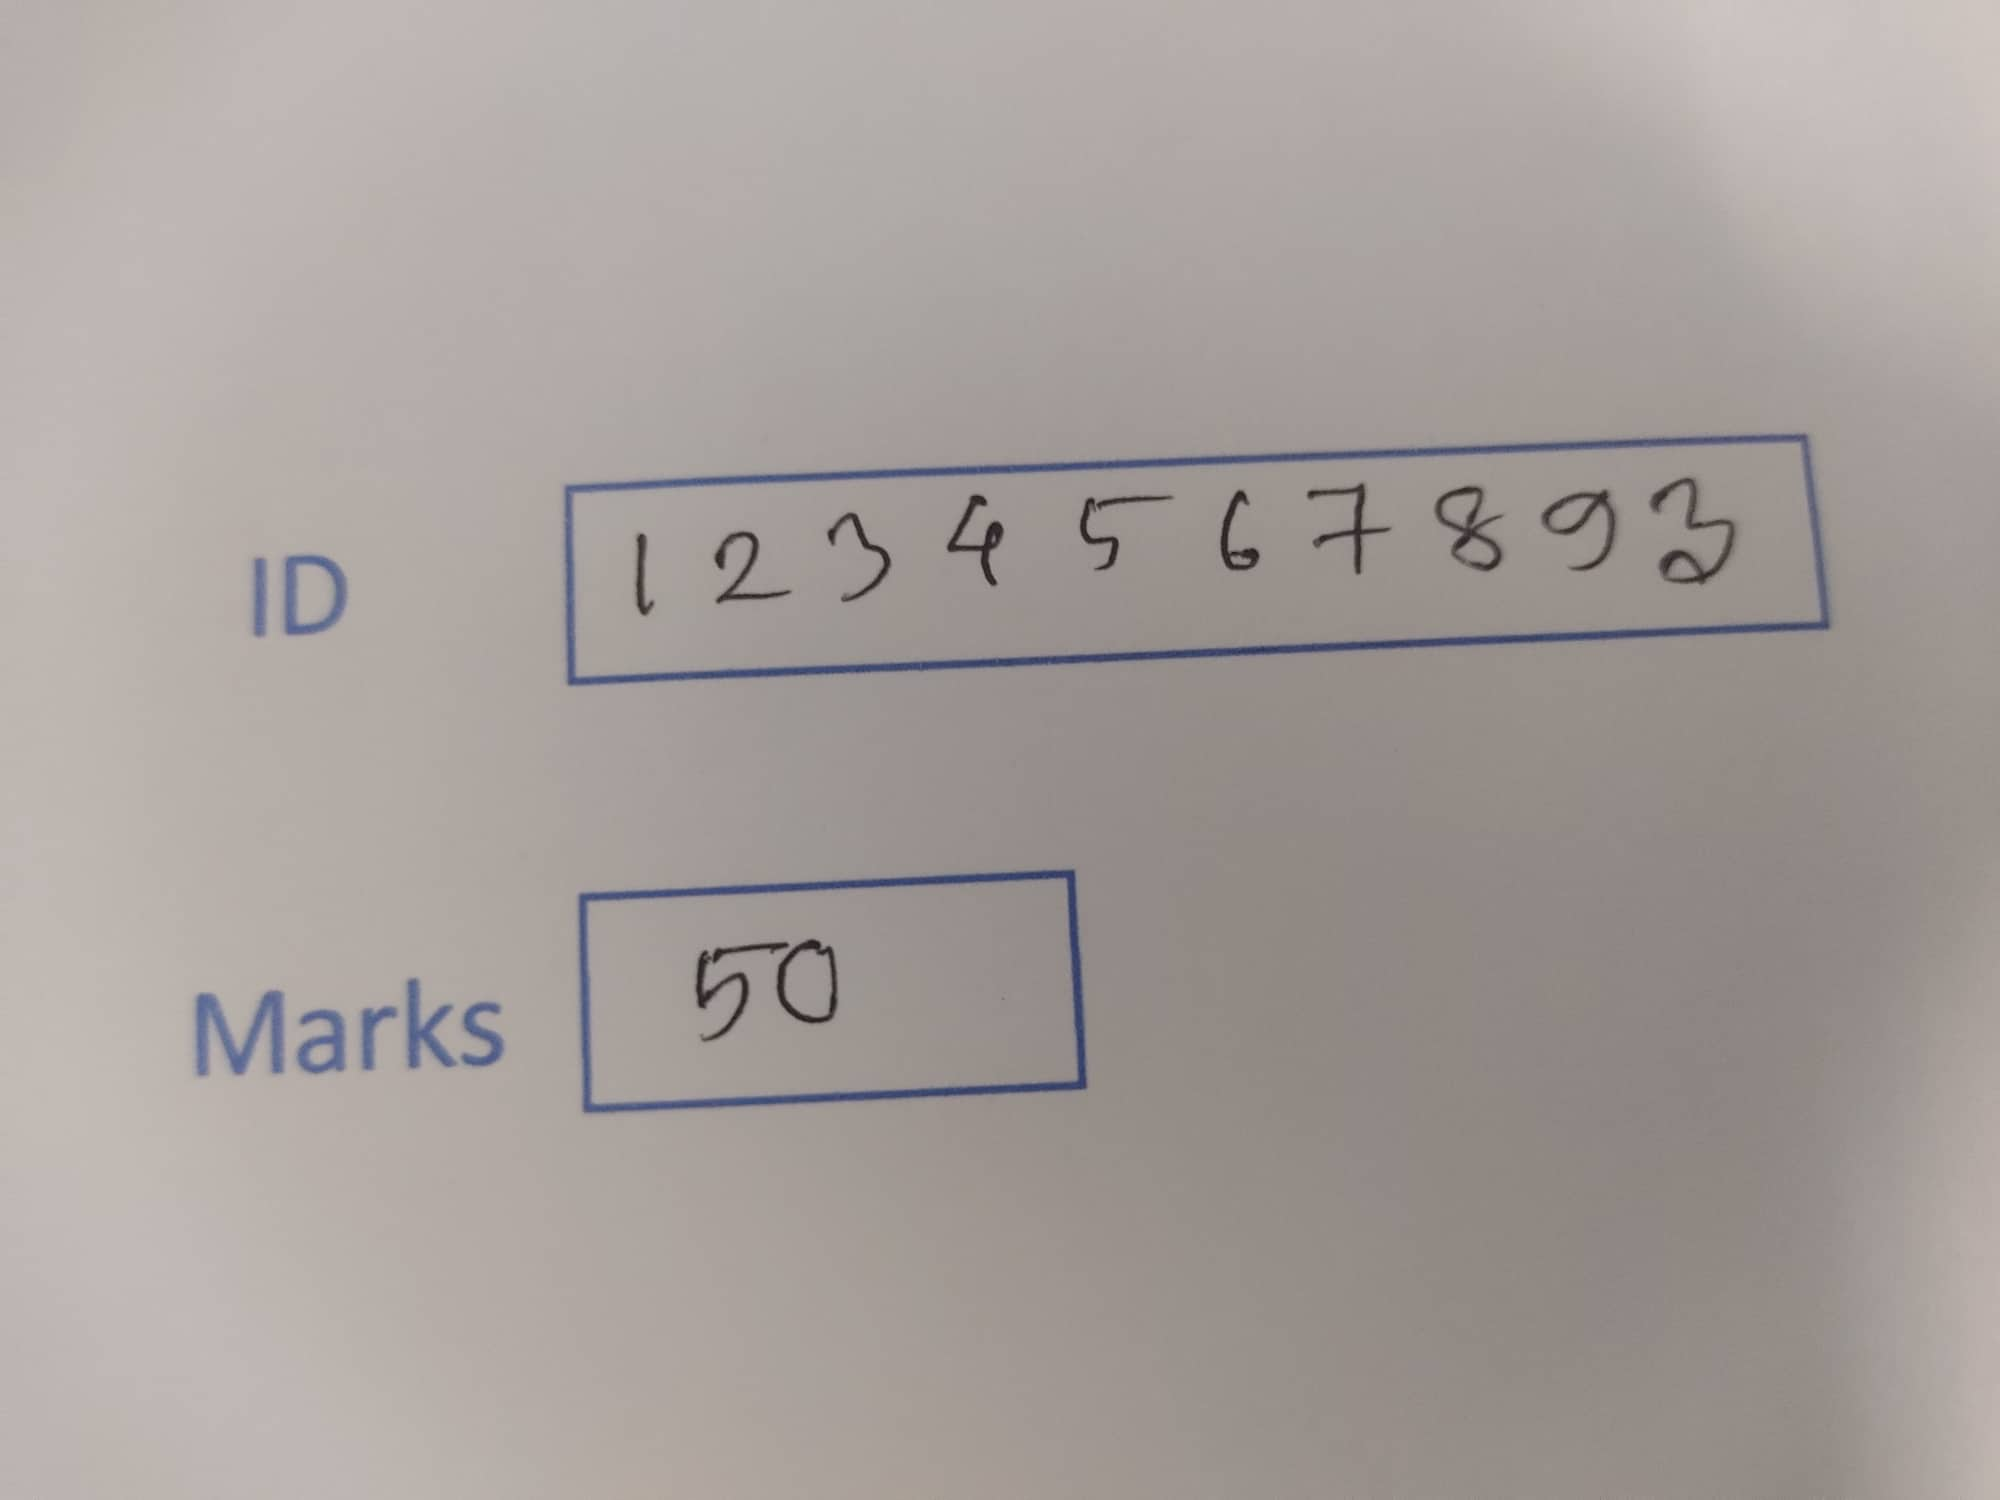 ID 1 2 3 4 5 6 7 8 9 3
Marks 50